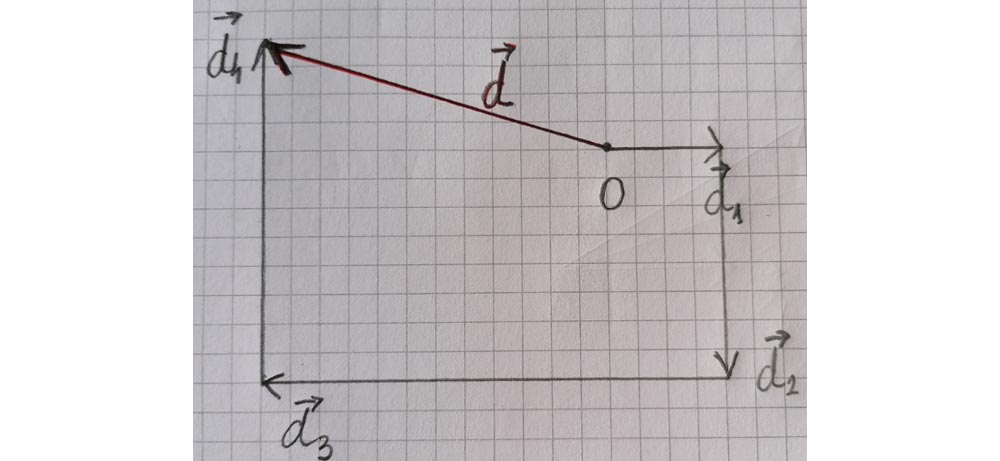 d⃗₄
d⃗
O
d⃗₁
d⃗₂
d⃗₃